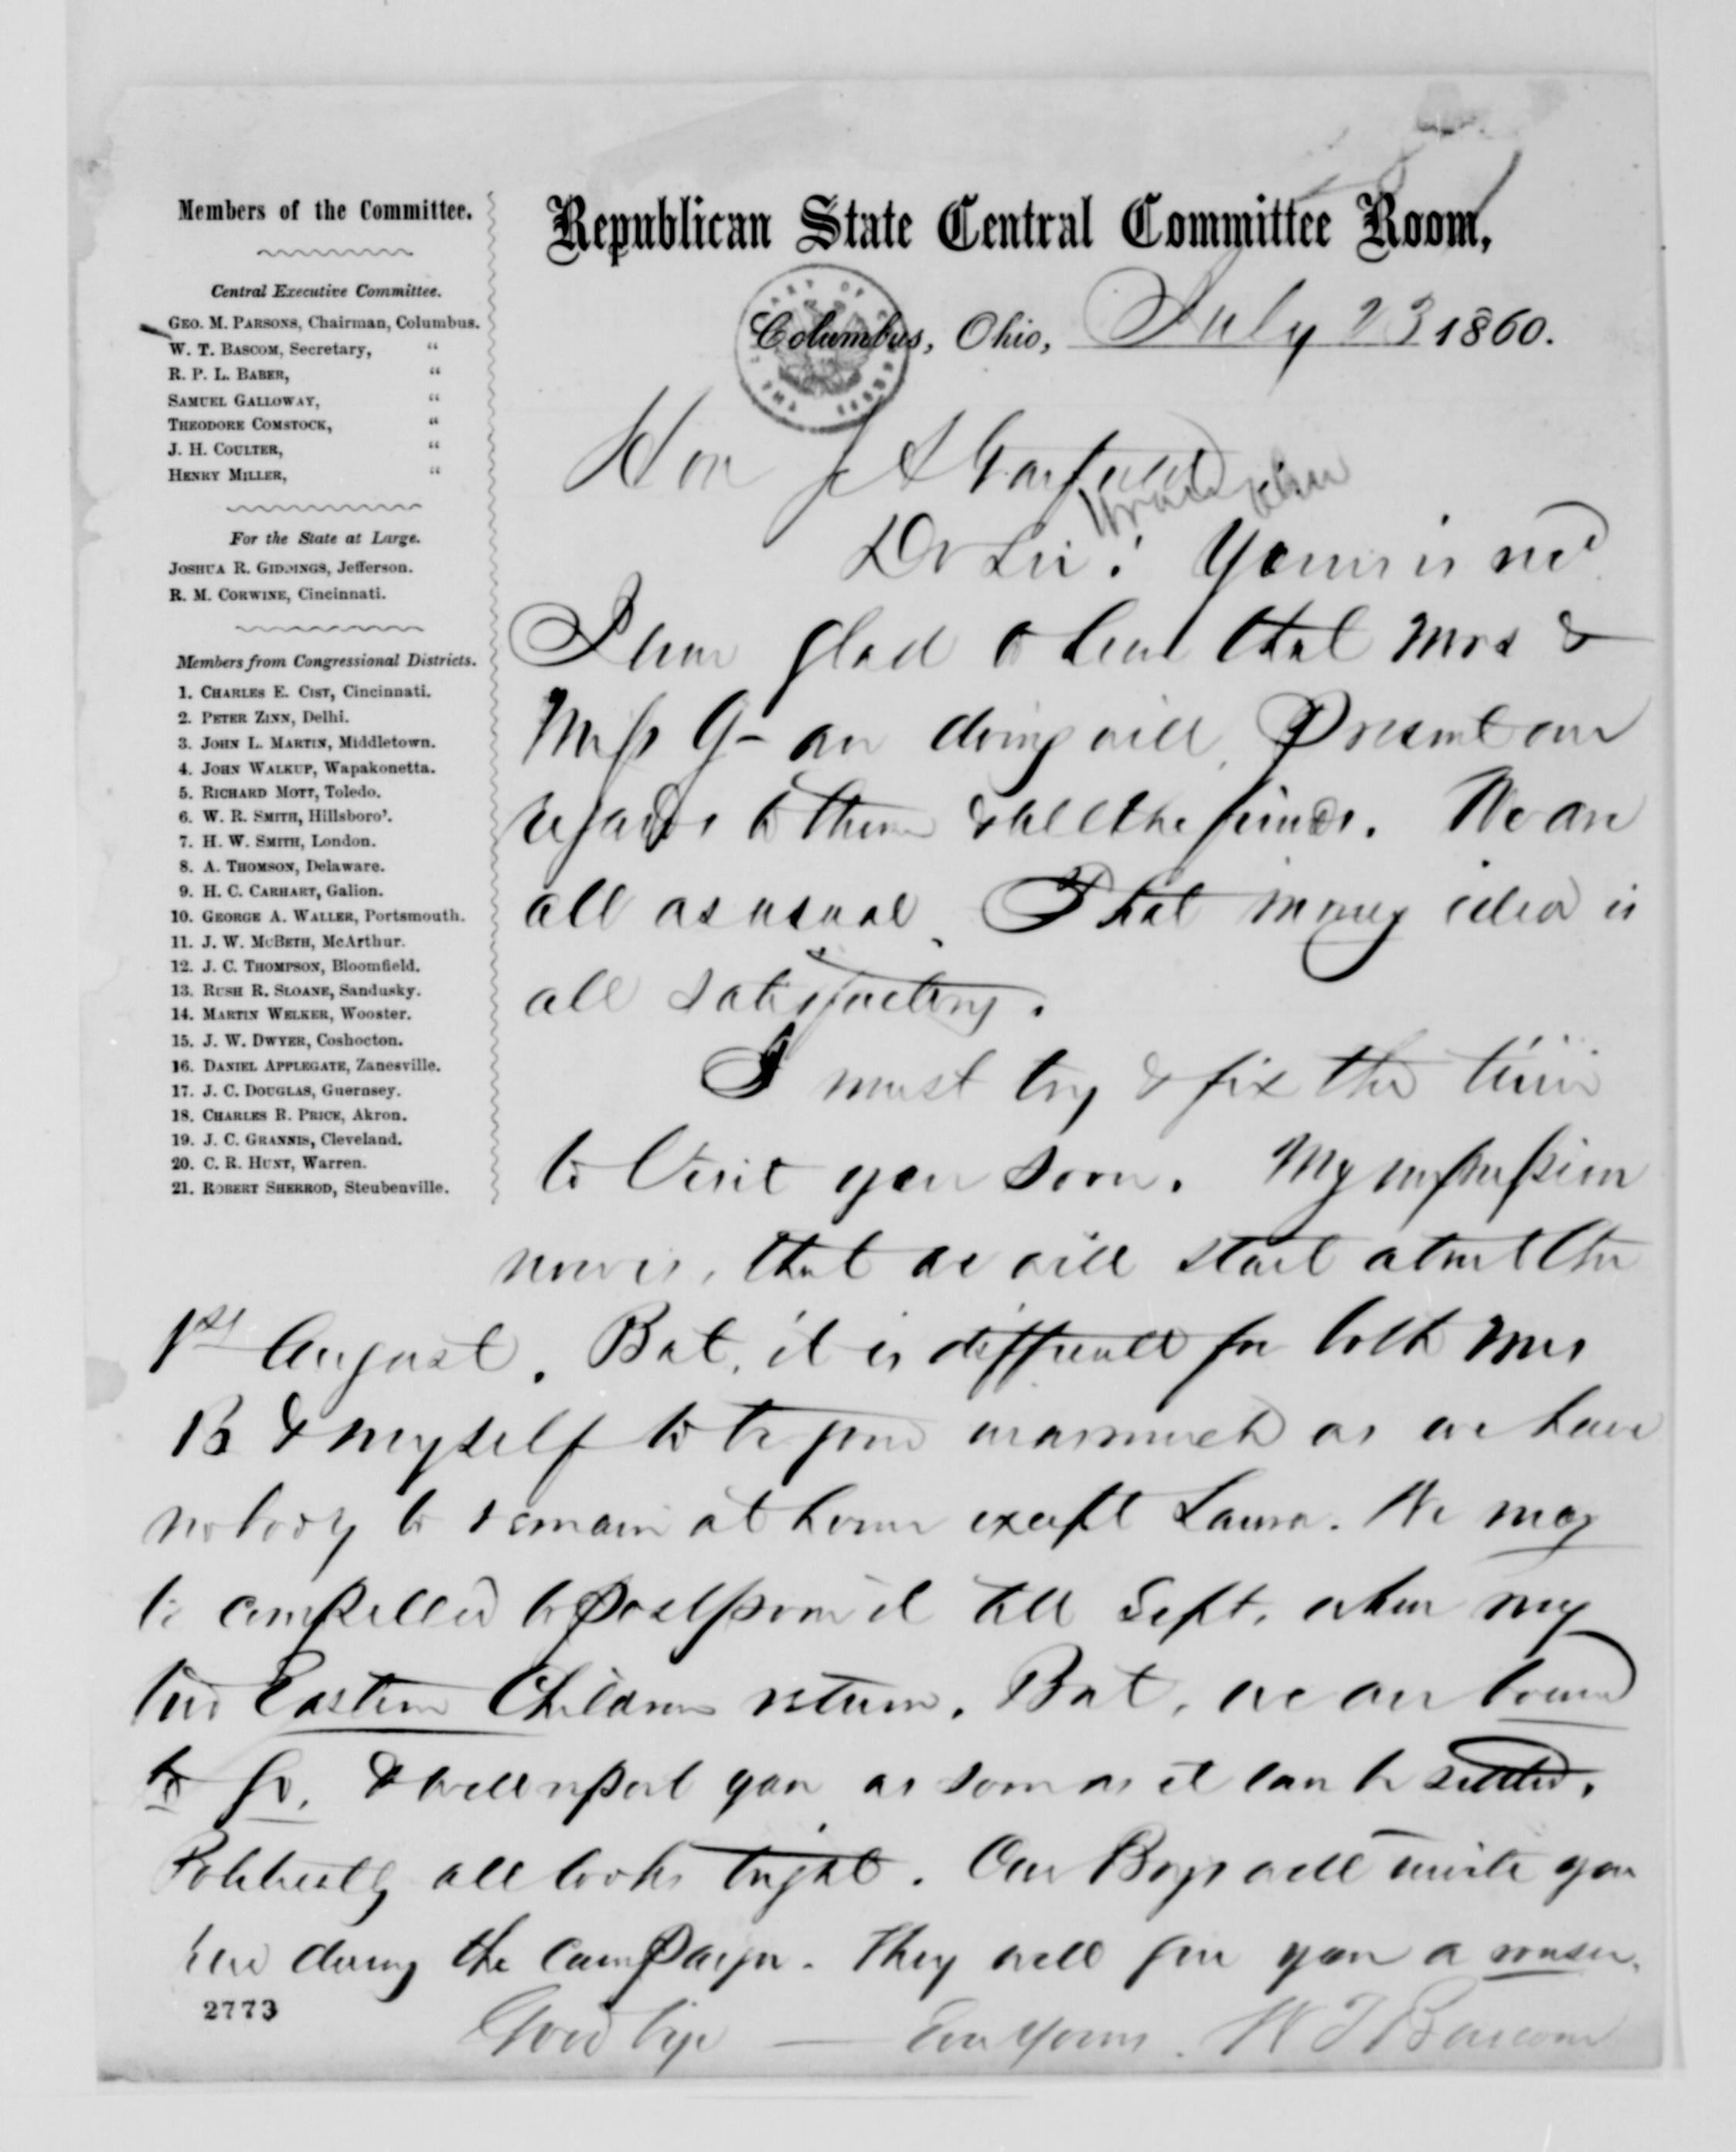 Members of the Committee.
Central Executive Committee.
GEO. M. PARSONS, Chairman, Columbus.
W. T. BASCOM, Secretary, "
R. P. L. BABER, "
SAMUEL GALLOWAY, "
THEODORE COMSTOCK, "
J. H. COULTER, "
HENRY MILLER, "
For the State at Large.
JOSHUA R. GIDDINGS, Jefferson.
R. M. CORWINE, Cincinnati.
Members from Congressional Districts.
1. CHARLES E. CIST, Cincinnati.
2. PETER ZINN, Delhi.
3. JOHN L. MARTIN, Middletown.
4. JOHN WALKUP, Wapakonetta.
5. RICHARD MOTT, Toledo.
6. W. R. SMITH, Hillsboro'.
7. H. W. SMITH, London.
8. A. THOMSON, Delaware.
9. H. C. CARHART, Galion.
10. GEORGE A. WALLER, Portsmouth.
11. J. W. McBETH, McArthur.
12. J. C. THOMPSON, Bloomfield.
13. RUSH R. SLOANE, Sandusky.
14. MARTIN WELKER, Wooster.
15. J. W. DWYER, Coshocton.
16. DANIEL APPLEGATE, Zanesville.
17. J. C. DOUGLAS, Guernsey.
18. CHARLES R. PRICE, Akron.
19. J. C. GRANNIS, Cleveland.
20. C. R. HUNT, Warren.
21. ROBERT SHERROD, Steubenville.
Republican State Central Committee Room,
Columbus, Ohio, July 23 1860.
Hon J A Garfield
Hiram Ohio
Dr Sir: Yours is recd
I am glad to hear that Mrs &
Miss G— are doing well. Present our
regards to them & all the friends. We are
all as usual. That money idea is
all satisfactory.
I must try & fix the time
to Visit you soon. My impression
now is, that we will start about the
1st August. But, it is difficult for both Mrs
B & myself to be gone inasmuch as we have
nobody to remain at home except Laura. We may
be compelled to postpone it till Sept. when my
two Eastern Children return. But, we are bound
to go. & will report you as soon as it can be settled.
Politically all looks bright. Our Boys will invite you
here during the Campaign. They will give you a rouser.
Good bye — Ever Yours. W T Bascom
2773